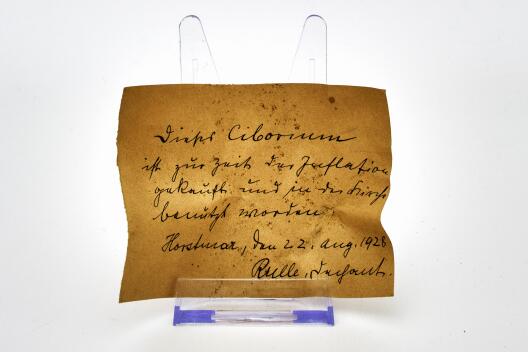 Dieses Ciborium
ist zur Zeit der Inflation
gekauft und in der Kirche
benützt worden.
Horstmar, den 22. Aug. 1928
Rulle, Dechant.